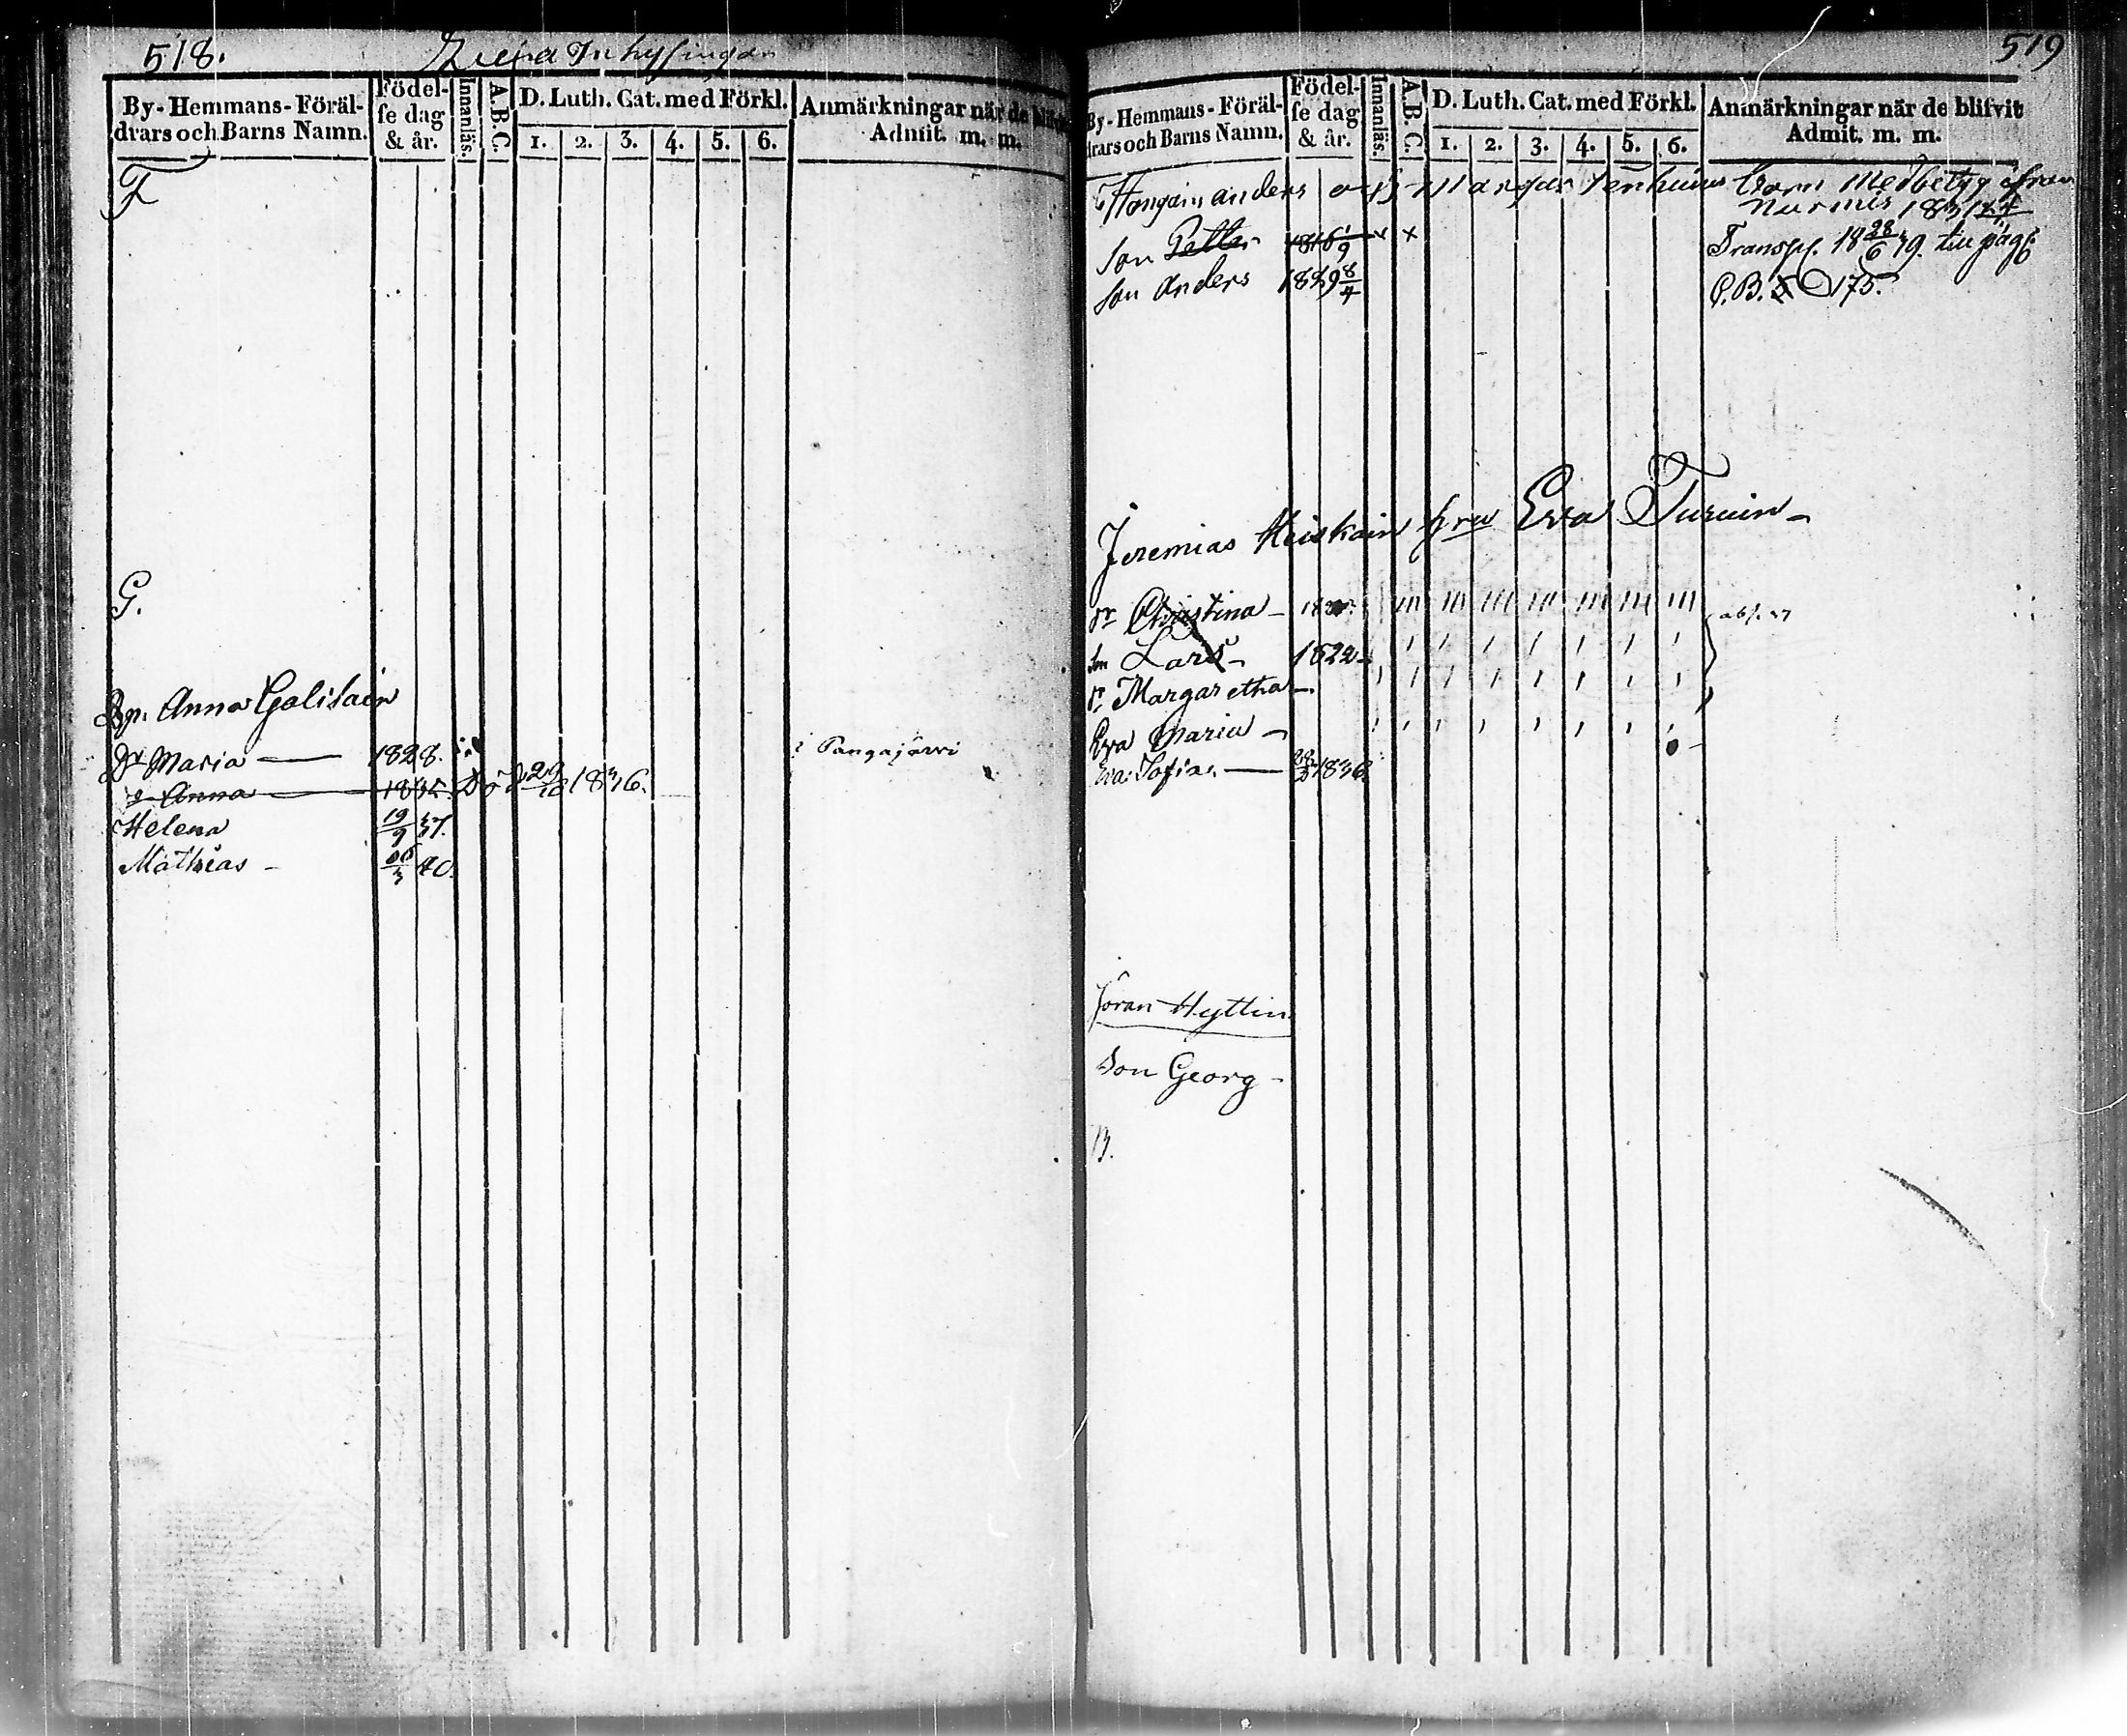 518.
Inhysingar
By-Hemmans-Föräl-
drars och Barns Namn.
Födel-
se dag
& år.
Innanläs.
A.B.C.
D. Luth. Cat. med Förkl.
1. 2. 3. 4. 5. 6.
Anmärkningar när de blifvit
Admit. m. m.
F
G.
Anna Galisain
Dr Maria 1828. i Pangajärvi
Anna 1835. Död 1836.
Helena 19/9 37.
Mathias 40.
519
By-Hemmans-Föräl-
drars och Barns Namn.
Födel-
se dag
& år.
Innanläs.
A.B.C.
D. Luth. Cat. med Förkl.
1. 2. 3. 4. 5. 6.
Anmärkningar när de blifvit
Admit. m. m.
Hongain Anders Margar Tenhuin kom med betyg ifrån
Nurmis 1831
son Petter 1816 1/9 x x Transp. 18 28/6 39. till pag:
son Anders 1829 8/4 C.B. 175.
Jeremias Heiskain hru Eva Turuin
dr Christina
abs. 37
son Lars 1822
dr Margaretha
Eva Maria
Eva Sofia 1836
Jöran Hyttin
Son Georg